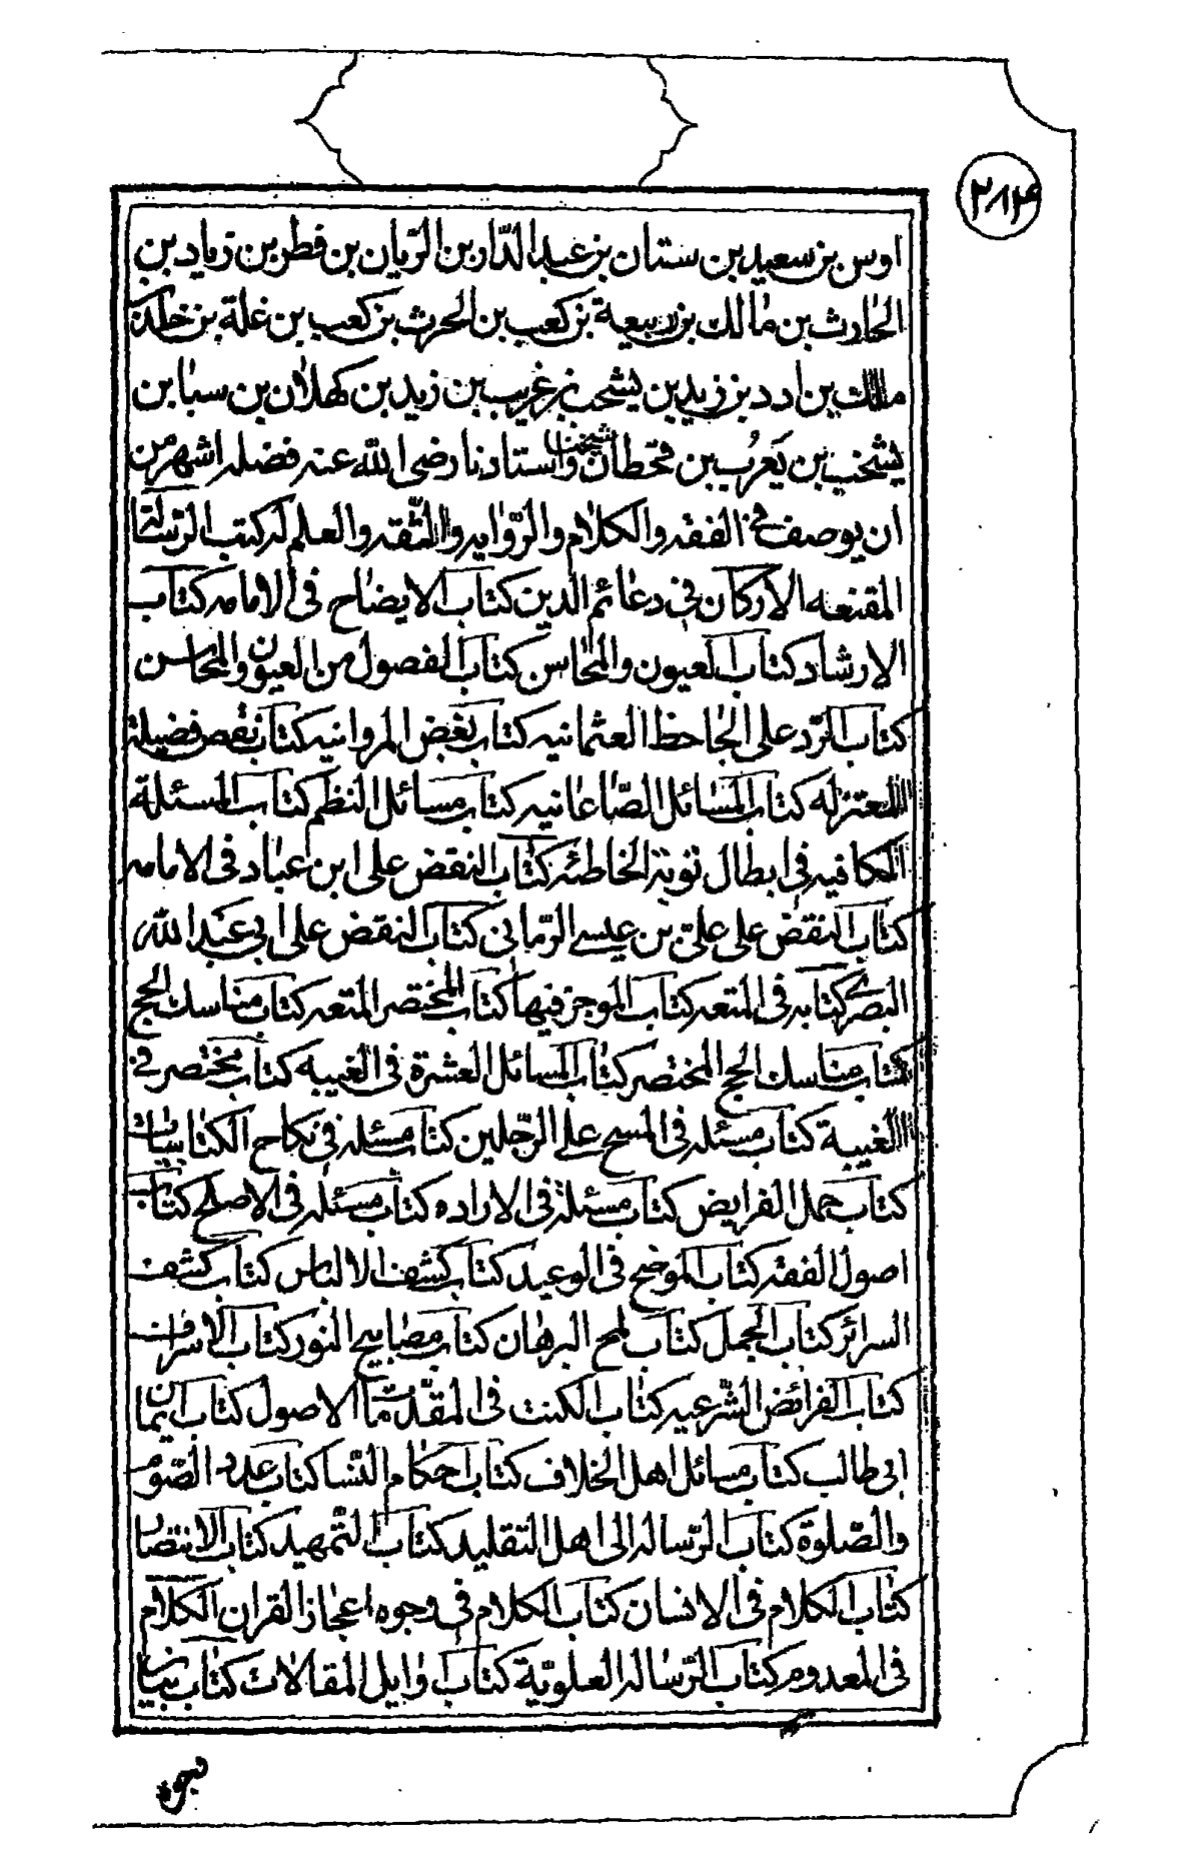 ٢٨۴
اوس بن سعيد بن ستان بن عبد الدّار بن الرّيان بن فطر بن زياد بن
الحارث بن مالك بن ربيعة بن كعب بن الحرث بن كعب بن غلة بن خلد بن
مالك بن ادد بن زيد بن يشخب بن غريب بن زيد بن كهلان بن سبا بن
يشخب بن يَعرُب بن قحطان شيخنا واستادنا رضى الله عنه فضله اشهر من
ان يوصف فى الفقه والكلام والرّوايه والثّقه والعلم له كتب الرّسالة
المقنعه الاركان فى دعائم الدين كتاب الايضاح فى الامامه كتاب
الارشاد كتاب العيون والمحاسن كتاب الفصول من العيون والمحاسن
كتاب الرّد على الجاحظ العثمانيه كتاب نغض المروانيه كتاب نقص فضيلة
المعتزله كتاب المسائل الصّاغانيه كتاب مسائل النظم كتاب المسئلة
الكافيه فى ابطال توبة الخاطئه كتاب النقض على ابن عباد فى الامامه
كتاب النقض على علىّ بن عيسى الرّمانى كتاب النقض على ابى عبد الله
البصرى كتابه فى المتعه كتاب الموجز فيها كتاب المختصر المتعه كتاب مناسك الحج
كتاب مناسك الحج المختصر كتاب المسائل العشرة فى الغيبه كتاب مختصر فى
الغيبة كتاب مسئله فى المسح على الرّجلين كتاب مسئله فى نكاح الكتابيات
كتاب جمل الفرايض كتاب مسئلة فى الاراده كتاب مسئله فى الاصلح كتاب
اصول الفقه كتاب الموضح فى الوعيد كتاب كشف الالتباس كتاب كشف
السرائر كتاب الجمل كتاب لمح البرهان كتاب مصابيح النور كتاب الاشراف
كتاب الفرائض الشّرعيه كتاب النكت فى المقدّمات الاصول كتاب ايمان
ابى طالب كتاب مسائل اهل الخلاف كتاب احكام النّسا كتاب عدد الصّوم
والصّلوة كتاب الرّساله الى اهل التقليد كتاب التّمهيد كتاب الانتصار
كتاب الكلام فى الانسان كتاب الكلام فى وجوه اعجاز القران الكلام
فى المعدوم كتاب الرّساله العلويّة كتاب اوايل المقالات كتاب بيان